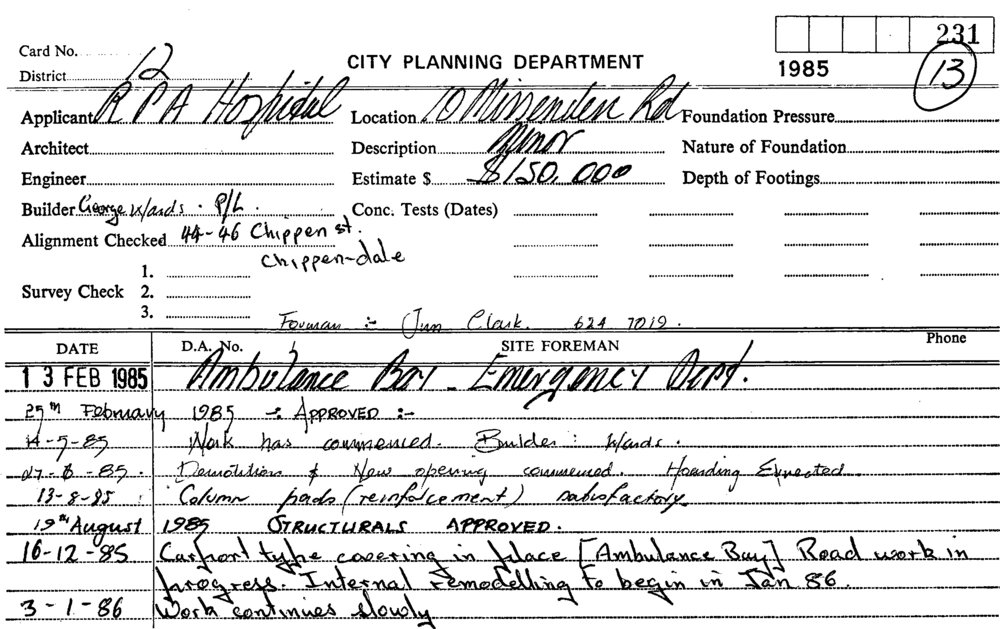 231
Card No.
12
CITY PLANNING DEPARTMENT
1985
13
District
Applicant R P A Hospital Location 10 Missenden Rd Foundation Pressure
Architect Description Minor Nature of Foundation
Engineer Estimate $ $150,000 Depth of Footings
Builder George Wards . P/L . Conc. Tests (Dates)
Alignment Checked 44-46 Chippen st.
Chippen-dale
1.
Survey Check 2.
3.
Forman :- Jim Clark. 624 7019.
DATE D.A. No. SITE FOREMAN Phone
13 FEB 1985 Ambulance Bay - Emergency Dept.
25th February 1985 -: APPROVED :-
14-5-85 Work has commenced. Builder : Wards.
27-6-85. Demolition & New opening commenced. Hoarding Erected
13-8-85 Column pads (reinforcement) satisfactory
19th August 1985 STRUCTURALS APPROVED.
16-12-85 Carport type covering in place [Ambulance Bay] Road work in
progress. Internal remodelling to begin in Jan 86.
3-1-86 Work continues slowly